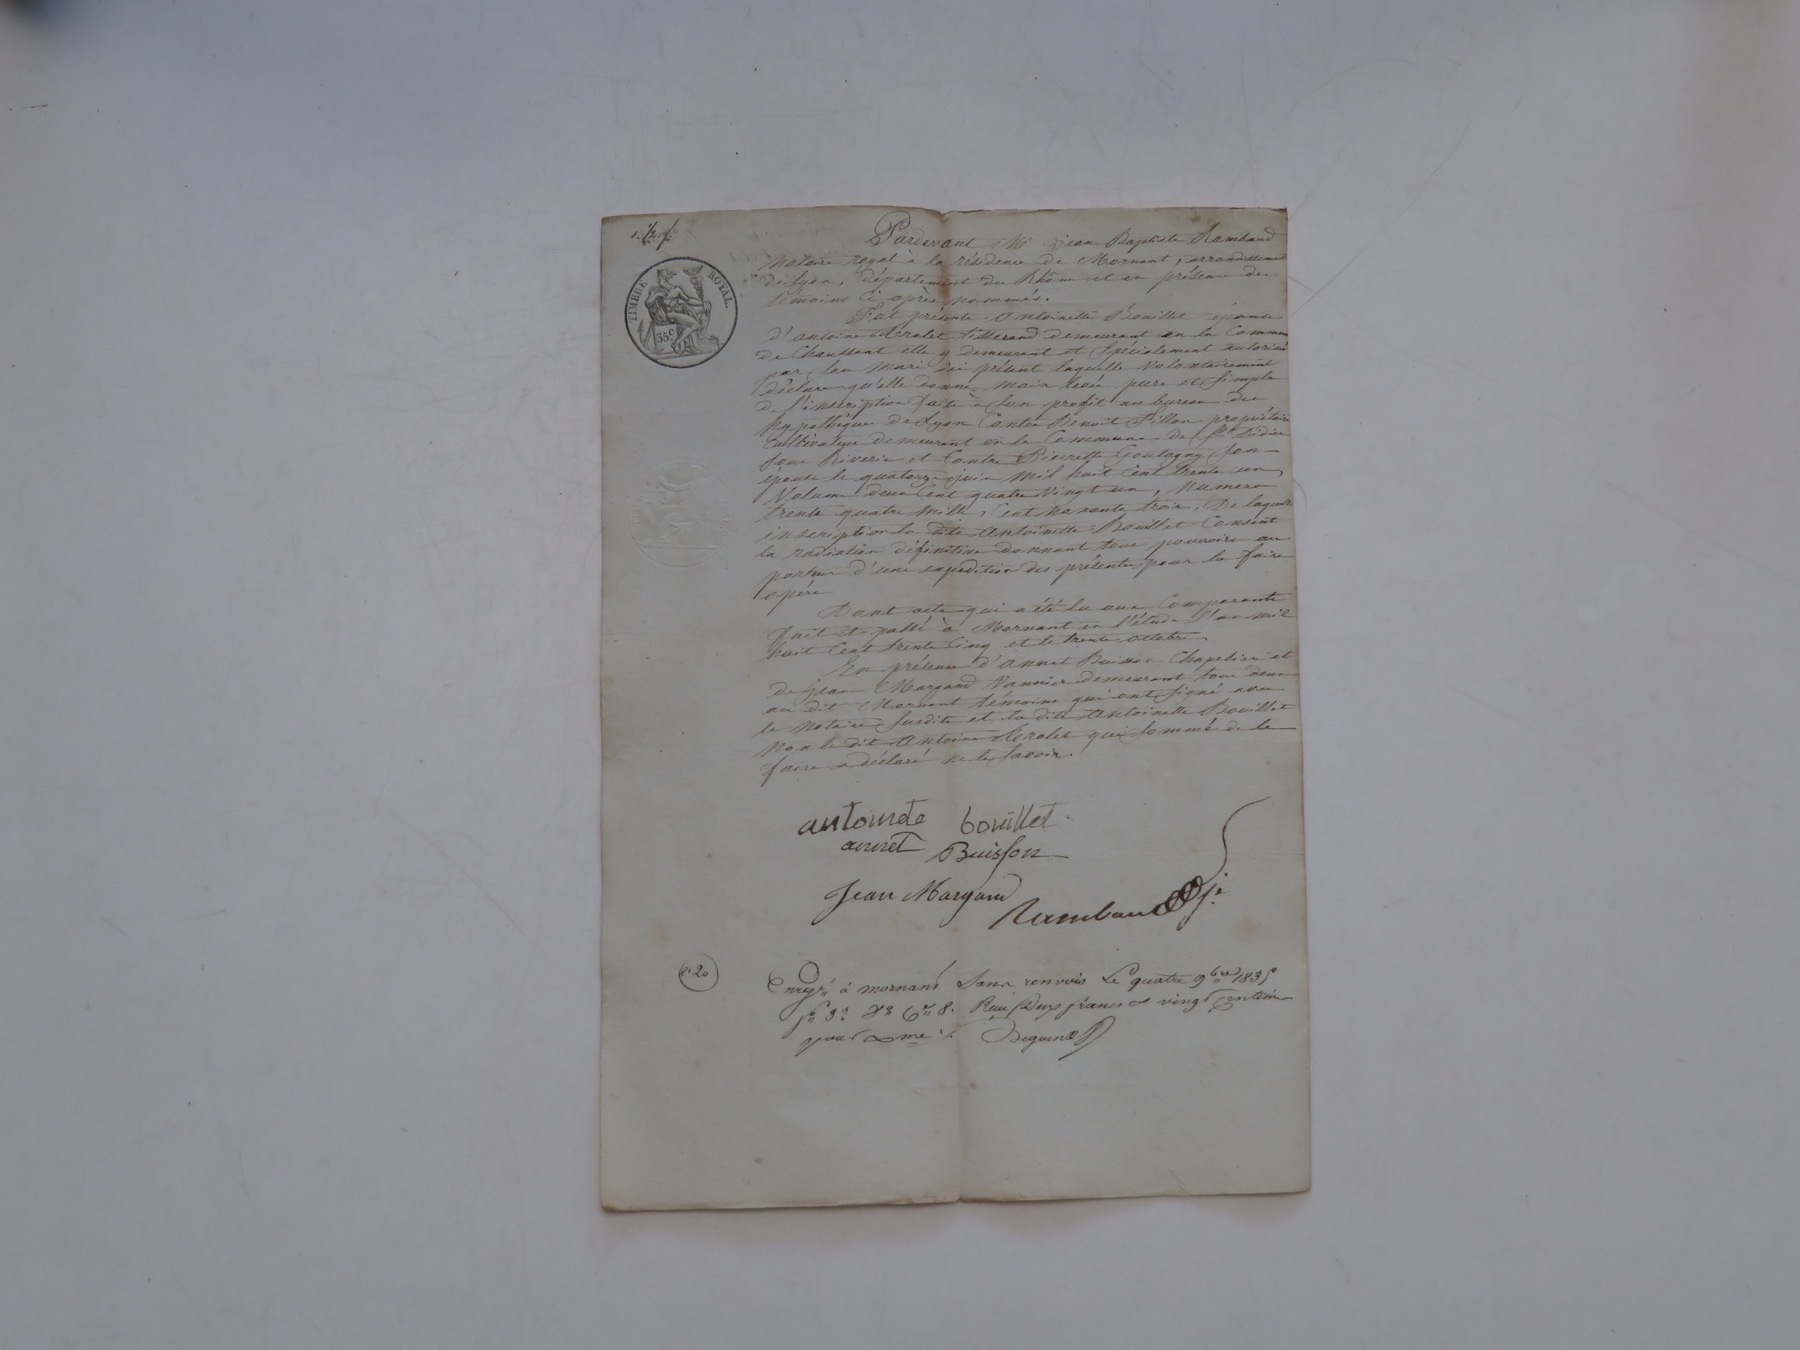 TIMBRE ROYAL
35c
Pardevant Me Jean Baptiste Rambaud
Notaire royal à la résidence de Mornant, arrondissement
de Lyon, département du Rhône et en présence des
témoins ci après nommés.
Fut présente Antoinette Bouillet épouse
d'antoine tisserand demeurant en la Commune
de Chaussant elle y demeurant et spécialement autorisée
par son Mari ici présent laquelle Volontairement
déclare qu'elle donne main levée pure et simple
de l'inscription faite à son profit au bureau des
hypothèques de Lyon Contre Benoit Pillon propriétaire
Cultivateur demeurant en la Commune de St Didier
sous Riverie et Contre Pierrette Goutagny son
épouse le quatorze juin mil huit Cent trente un,
Volume deux Cent quatre Vingt un, Numero
trente quatre mille, Cent Nonante trois, De laquelle
inscription la dite Antoinette Bouillet Consent
la radiation définitive donnant tous pouvoirs au
porteur d'une expédition des présentes pour la faire
opérer
Dont acte qui a été lu aux Comparants
fait et passé à Mornant en l'étude l'an mil
huit Cent trente Cinq et le trente octobre,
En présence d'annet Buisson Chapelier et
de Jean Margand Vannier demeurant tous deux
au dit Mornant témoins qui ont signé avec
le Notaire susdite et la dite Antoinette Bouillet
Non le dit Antoine qui sommé de le
faire a déclaré ne le savoir.
antoinete bouillet
annet Buisson
Jean Margand
Rambaud
Enregé à mornant sans renvois Le quatre 9bre 1835
fo 32 Vo Ce 8. Reçu Deux francs & vingt centimes
pour Xme